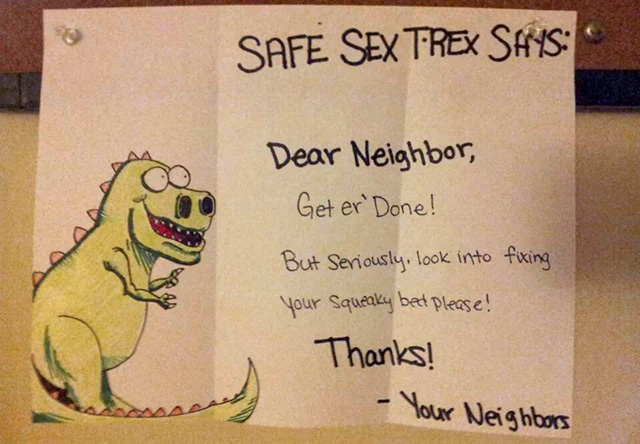 SAFE SEX T-REX SAYS:
Dear Neighbor,
Get er' Done!
But seriously, look into fixing
your squeaky bed please!
Thanks!
- Your Neighbors